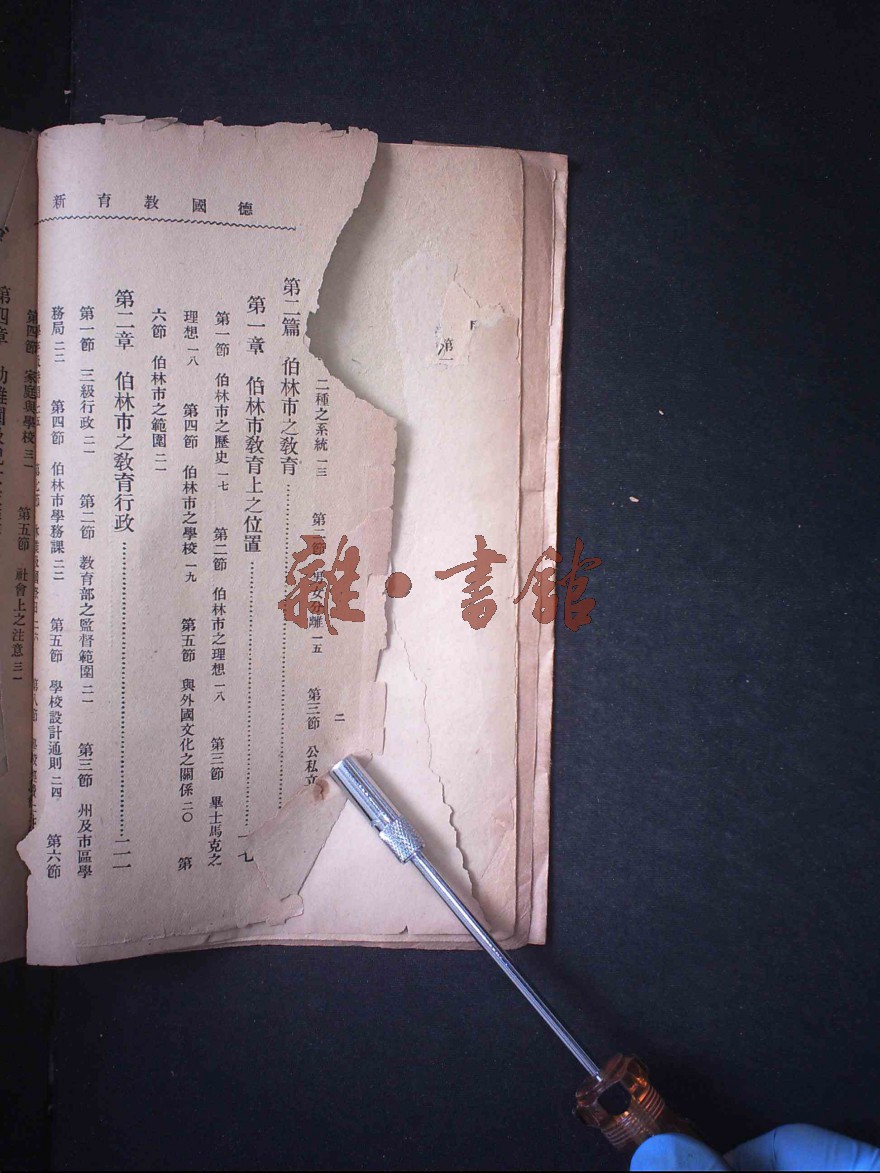 德國教育新
二
二種之系統 一三　第二節　男女分離 一五　第三節　公私立
第二篇　伯林市之教育
第一章　伯林市教育上之位置 一七
第一節　伯林市之歷史 一七　第二節　伯林市之理想 一八　第三節　畢士馬克之
理想 一八　第四節　伯林市之學校 一九　第五節　與外國文化之關係 二〇　第
六節　伯林市之範圍 二一
第二章　伯林市之教育行政 二一
第一節　三級行政 二一　第二節　教育部之監督範圍 二一　第三節　州及市區學
務局 二二　第四節　伯林市學務課 二二　第五節　學校設計通則 二四　第六節
第四節　家庭與學校 三一　第五節　社會上之注意 三一
第四章　幼稚園
第一
雜·書館